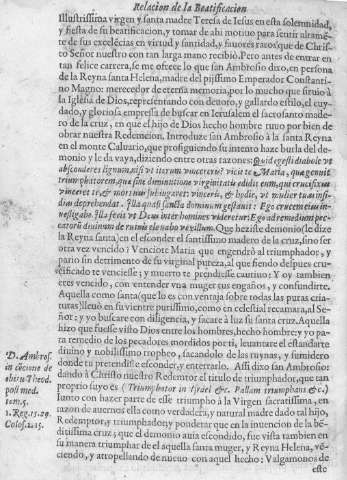 Relacion de la Beatificacion
Illustrissima virgen y santa madre Teresa de Iesus en esta solemnidad,
y fiesta de su beatificacion, y tomar de ahi motiuo para sentir altamē-
te de sus excelēcias en virtud y santidad, y fauores raros que de Chris-
to Señor nuestro con tan larga mano recibiò. Pero antes de entrar en
tan felice carrera, se me ofrece lo que san Ambrosio dixo, en persona
de la Reyna santa Helena, madre del pijssimo Emperador Constanti-
no Magno: merecedor de eterna memoria, por lo mucho que siruio à
la Iglesia de Dios, representando con denoto, y gallardo estilo, el cuy-
dado, y gloriosa empresa de buscar en Ierusalem el sacrosanto made-
ro de la cruz, en que el hijo de Dios hecho hombre tuuo por bien de
obrar nuestra Redempcion. Introduze san Ambrosio à la santa Reyna
en el monte Caluario, que prosiguiendo su intento haze burla del de-
monio y le da vaya, diziendo entre otras razones: Quid egisti diabole vt
absconderes lignum, nisi vt iterum vincereris? vicit te Maria, quæ genuit
triumphatorem, quæ sine diminutione virginitatis edidit eum, qui crucifixus
vinceret te & mortuus subiugaret: vinceris, & hodie, vt mulier tuas insi-
dias deprehendat. Illa quasi sancta dominum gestauit: Ego crucem eius in-
uestigabo. Illa fecit vt Deus inter homines videretur: Ego ad remedium pec-
catorū diuinum de ruinis eleuabo vexillum. Que heziste demonio (le dize
la Reyna santa) en el esconder el santissimo madero de la cruz, sino ser
otra vez vencido? Venciote Maria que engendrò al triumphador, y
pario sin detrimento de su virginal pureza, al que siendo despues cru-
cificado te venciesse; y muerto te prendiesse cautiuo: Y oy tambien
eres vencido, con entender vna muger tus engaños, y confundirte.
Aquella como santa (que lo es con ventaja sobre todas las puras cria-
turas) lleuò en su vientre purissimo, como en celestial recamara, al Se-
ñor: y yo buscare con diligencia, y sacare à luz su santa cruz. Aquella
hizo que fuesse visto Dios entre los hombres, hecho hombre; y yo pa-
ra remedio de los pecadores mordidos por ti, leuantare el estandarte
diuino y nobilissimo tropheo, sacandolo de las ruynas, y sumidero
donde tu pretendiste esconder, y enterrarlo. Assi dixo san Ambrosio:
dando à Christo nuestro Redemtor el titulo de triumphador, que tan
proprio suyo es (Triumphator in Israel &c. Pallam triumphans &c.)
Iunto con hazer parte de esse triumpho à la Virgen sacratissima, en
razon de auernos ella como verdadera, y natural madre dado tal hijo,
Redemptor, y triumphador; y ponderar que en la inuencion de la bē-
ditissima cruz; que el demonio auia escondido, fue vista tambien en
su manera triumphar de el aquella santa muger, y Reyna Helena, vē-
ciendo, y atropellando de nueuo con aquel hecho: Valgamonos de
este
D. Ambros.
in cōcione de
obitu Theod.
post med.
tom. 5.
1. Reg. 15. 29.
Colos. 2. 15.